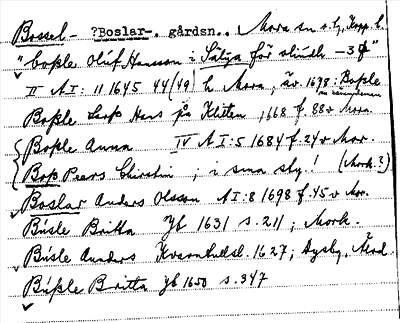 Bossel- ?Boslar-. gårdsn., Mora sn o. tg, Kopp. l.
"boßle Oluf Hansson i Sälja för slinck -3 ß"
II A I: 11 1645 44 (49) h Mora, äv. 1698: Boßle
Boßle Larß Hans på Kliten, 1668 f. 88 v Mora
Boßle Anna IV A I:5 1684 f. 24 v Mor.
Boß Peers Chirstin, i sma sty.! (Mork.?)
Boslar Anders Olsson A I:8 1698 f. 45 v Mor.
Büsle Britta Jb 1631 s. 211, Mork.
Büsle Anders Kvarntullsl. 1627; Aysby, Älvd.
Büßle Britta Jb 1650 s. 347